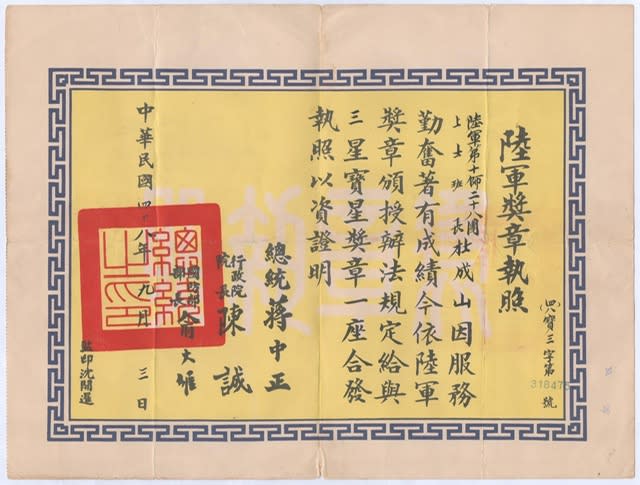 陸軍獎章執照
(四八)寶三字第318475號
陸軍第十師二十八團
上士班長杜成山因服務
勤奮著有成績今依陸軍
獎章頒授辦法規定給與
三星寶星獎章一座合發
執照以資證明
總統蔣中正
行政院院長陳誠
國防部部長俞大維
中華民國四十八年九月三日
監印沈開運
總統之印